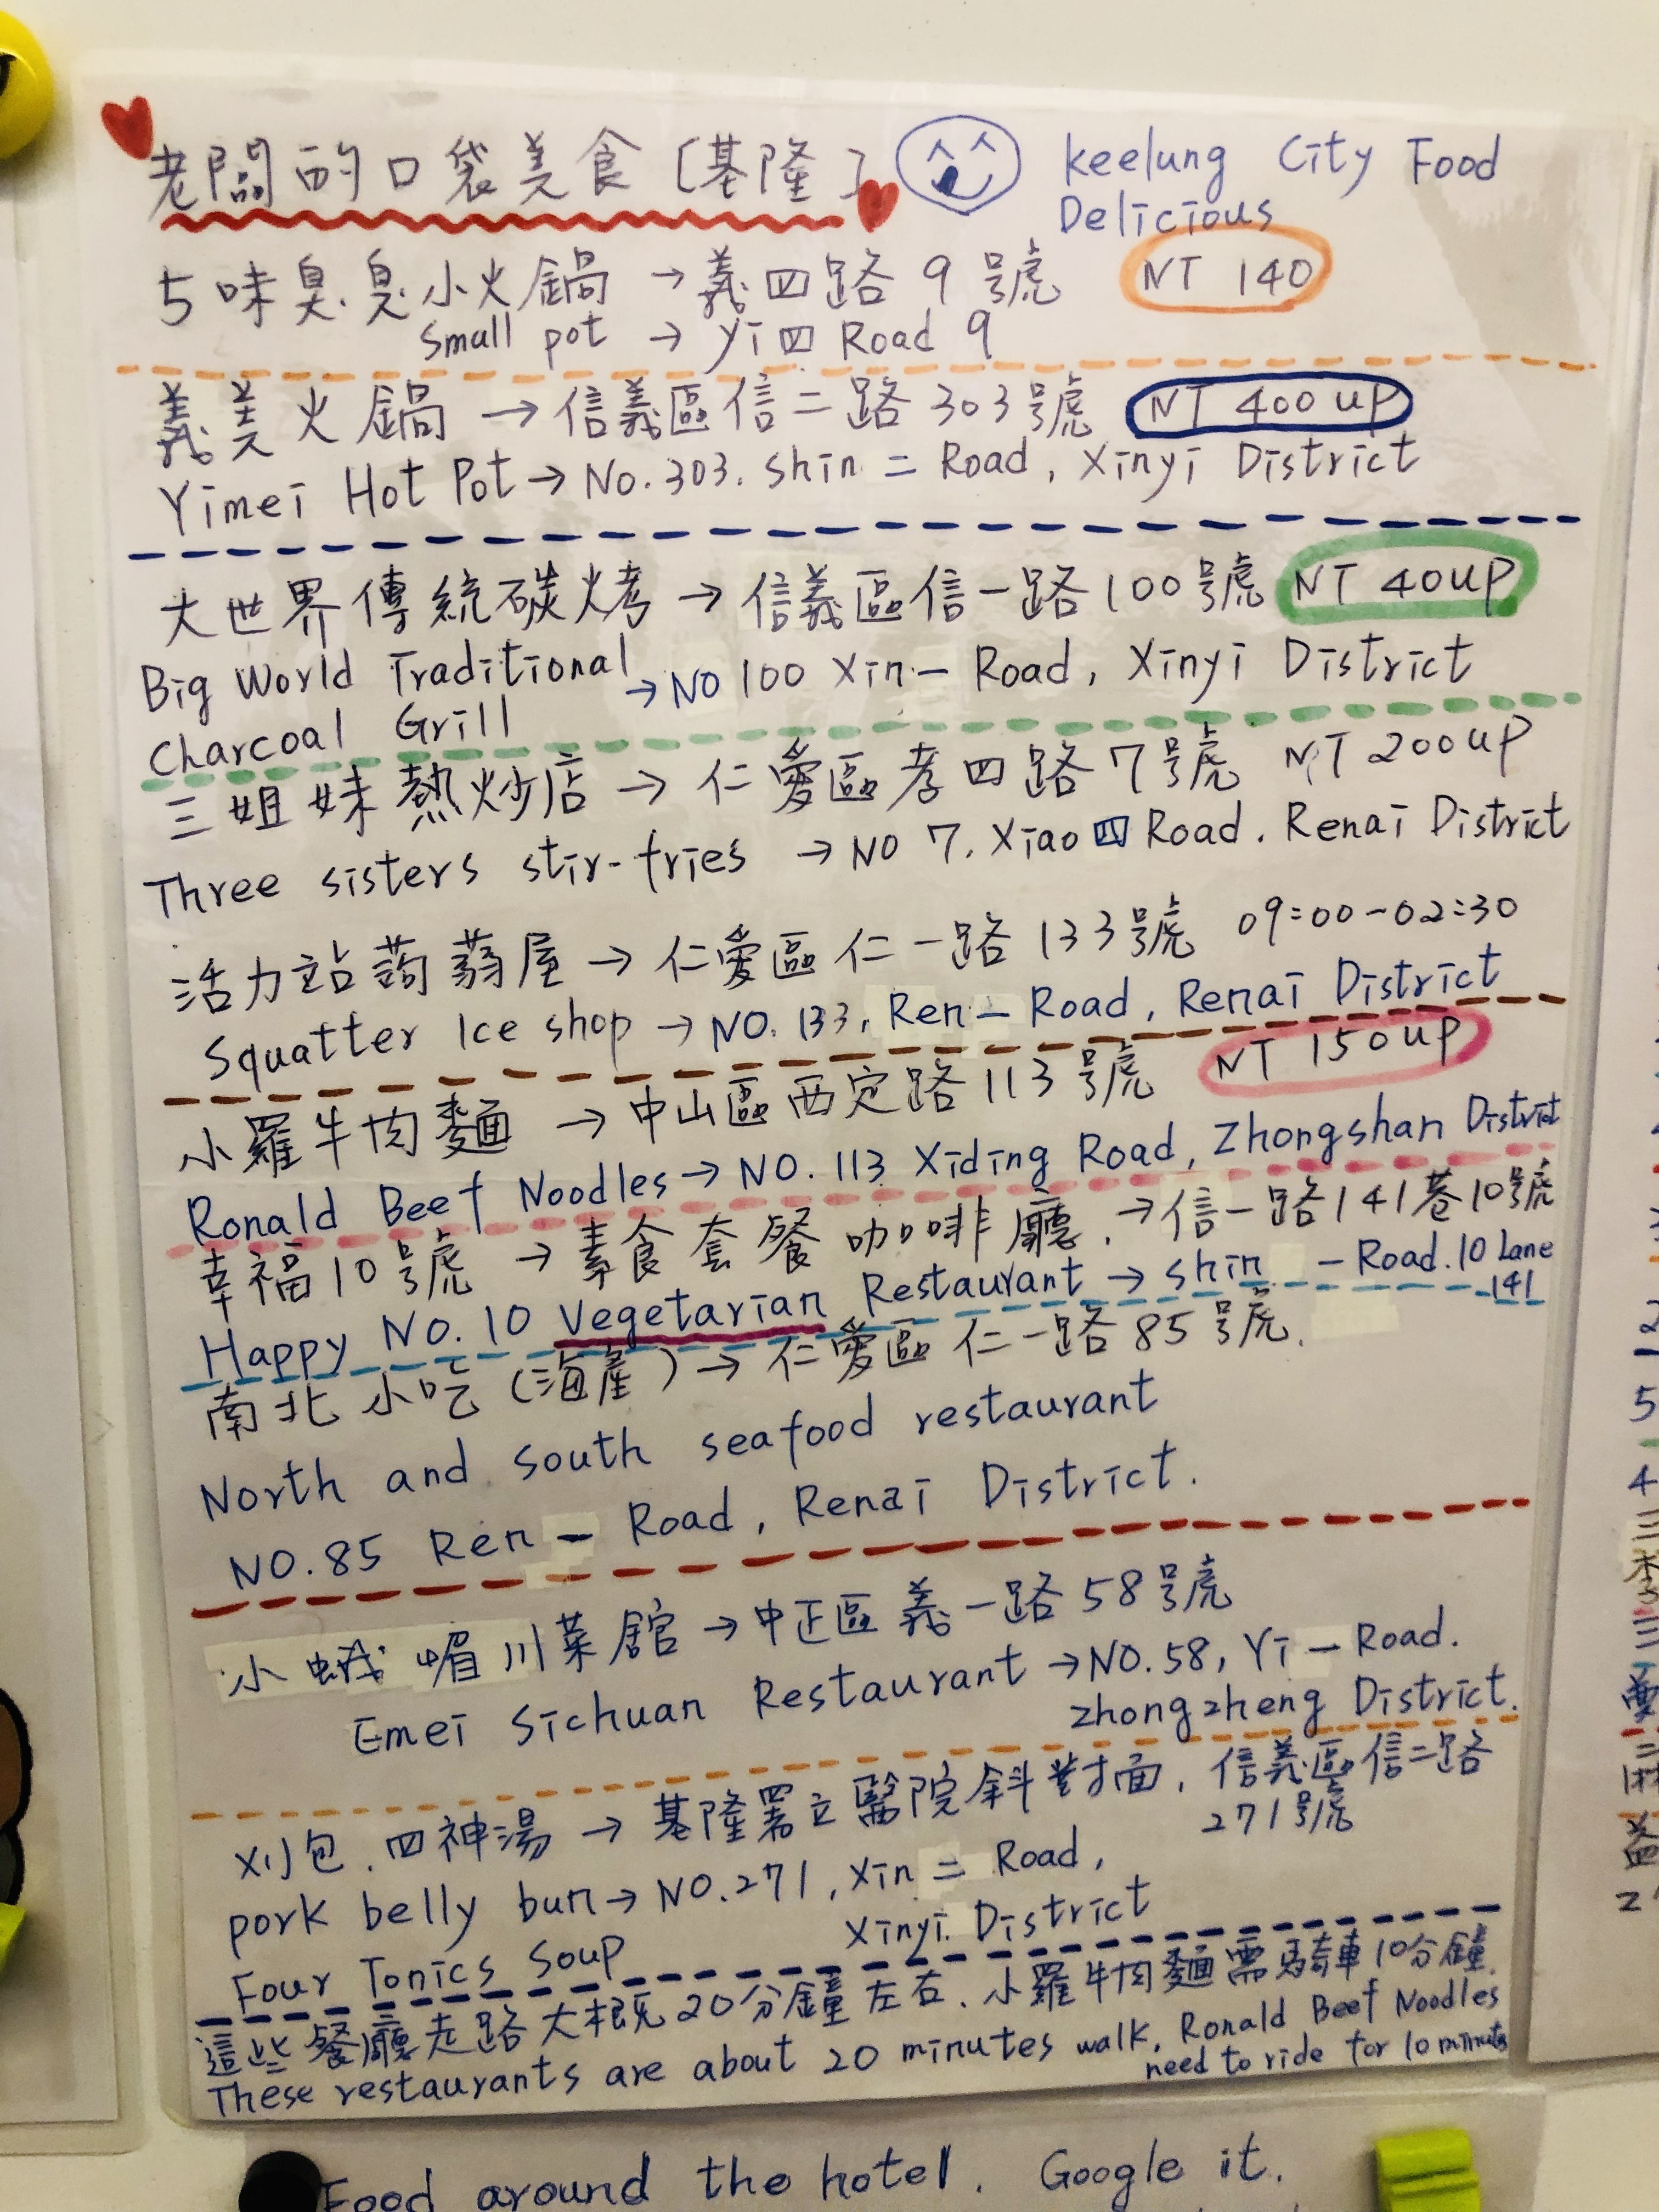 老闆的口袋美食[基隆] keelung City Food
Delicious
5味臭臭小火鍋 → 義四路9號 NT 140
Small pot → Yi四 Road 9
義美火鍋 → 信義區信二路303號 NT 400 up
Yimei Hot Pot → No.303. Shin 二 Road, Xinyi District
大世界傳統碳烤 → 信義區信一路100號 NT 40up
Big World Traditional → NO 100 Xin一 Road, Xinyi District
Charcoal Grill
三姐妹熱炒店 → 仁愛區孝四路7號 NT 200up
Three sisters stir-fries → NO 7. Xiao 四 Road. Renai District
活力站蒟蒻屋 → 仁愛區仁一路133號 09:00-02:30
Squatter Ice shop → NO. 133, Ren一 Road, Renai District
小羅牛肉麵 → 中山區西定路113號 NT 150up
Ronald Beef Noodles → NO. 113 Xiding Road, Zhongshan District
幸福10號 → 素食套餐咖啡廳. → 信一路141巷10號
Happy NO.10 Vegetarian Restaurant → shin 一Road.10 Lane
141
南北小吃(海產) → 仁愛區仁一路85號.
North and South seafood restaurant
NO.85 Ren一 Road, Renai District.
小蛾嵋川菜館 → 中正區義一路58號
Emei Sichuan Restaurant → NO.58, Yi一Road.
Zhongzheng District.
刈包.四神湯 → 基隆署立醫院斜對面, 信義區信二路
271號
pork belly bun → NO.271, Xin二 Road,
Xinyi District
Four Tonics Soup
這些餐廳走路大概20分鐘左右.小羅牛肉麵需騎車10分鐘.
These restaurants are about 20 minutes walk, Ronald Beef Noodles
need to ride for 10 minutes
Food around the hotel. Google it.